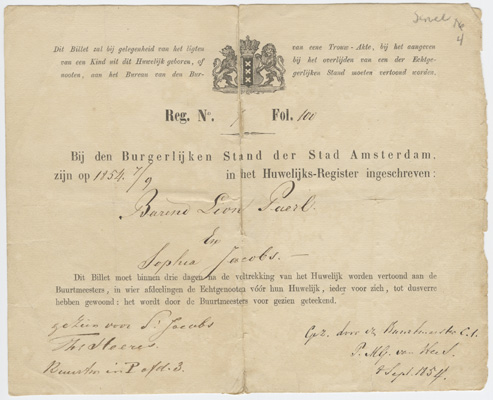 Dit Billet zal bij gelegenheid van het ligten van eene Trouw-Akte, bij het aangeven
van een Kind uit dit Huwelijk geboren, of bij het overlijden van een der Echtge-
nooten, aan het Bureau van den Bur- gerlijken Stand moeten vertoond worden.
Reg. No. 7 Fol. 100
Bij den Burgerlijken Stand der Stad Amsterdam,
zijn op 1854 7/9 in het Huwelijks-Register ingeschreven:
Barend Leon Paerl.
En
Sophia Jacobs.
Dit Billet moet binnen drie dagen na de voltrekking van het Huwelijk worden vertoond aan de
Buurtmeesters, in wier afdeelingen de Echtgenooten vóór hun Huwelijk, ieder voor zich, tot dusverre
hebben gewoond: het wordt door de Buurtmeesters voor gezien geteekend.
gezien voor S. Jacobs
Buurtm in P afd. 3.
Gez. door de Buurtmeester
8 Sept. 1854.